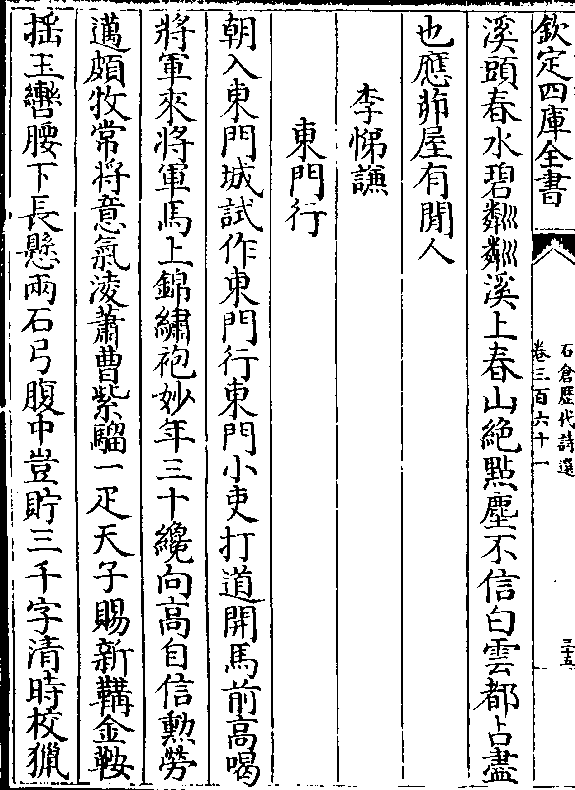 欽定四庫全書
石倉歷代詩選
卷三百六十一
三十五
溪頭春水碧粼粼溪上春山絶點塵不信白雲都占盡
也應茆屋有閒人
李悌謙
東門行
朝入東門城試作東門行東門小吏打道開馬前高喝
將軍來將軍馬上錦繡袍妙年三十纔向高自信勲勞
邁頗牧常將意氣凌蕭曹紫騮一疋天子賜新鞲金鞍
揺玉轡腰下長懸兩石弓腹中豈貯三千字清時校獵